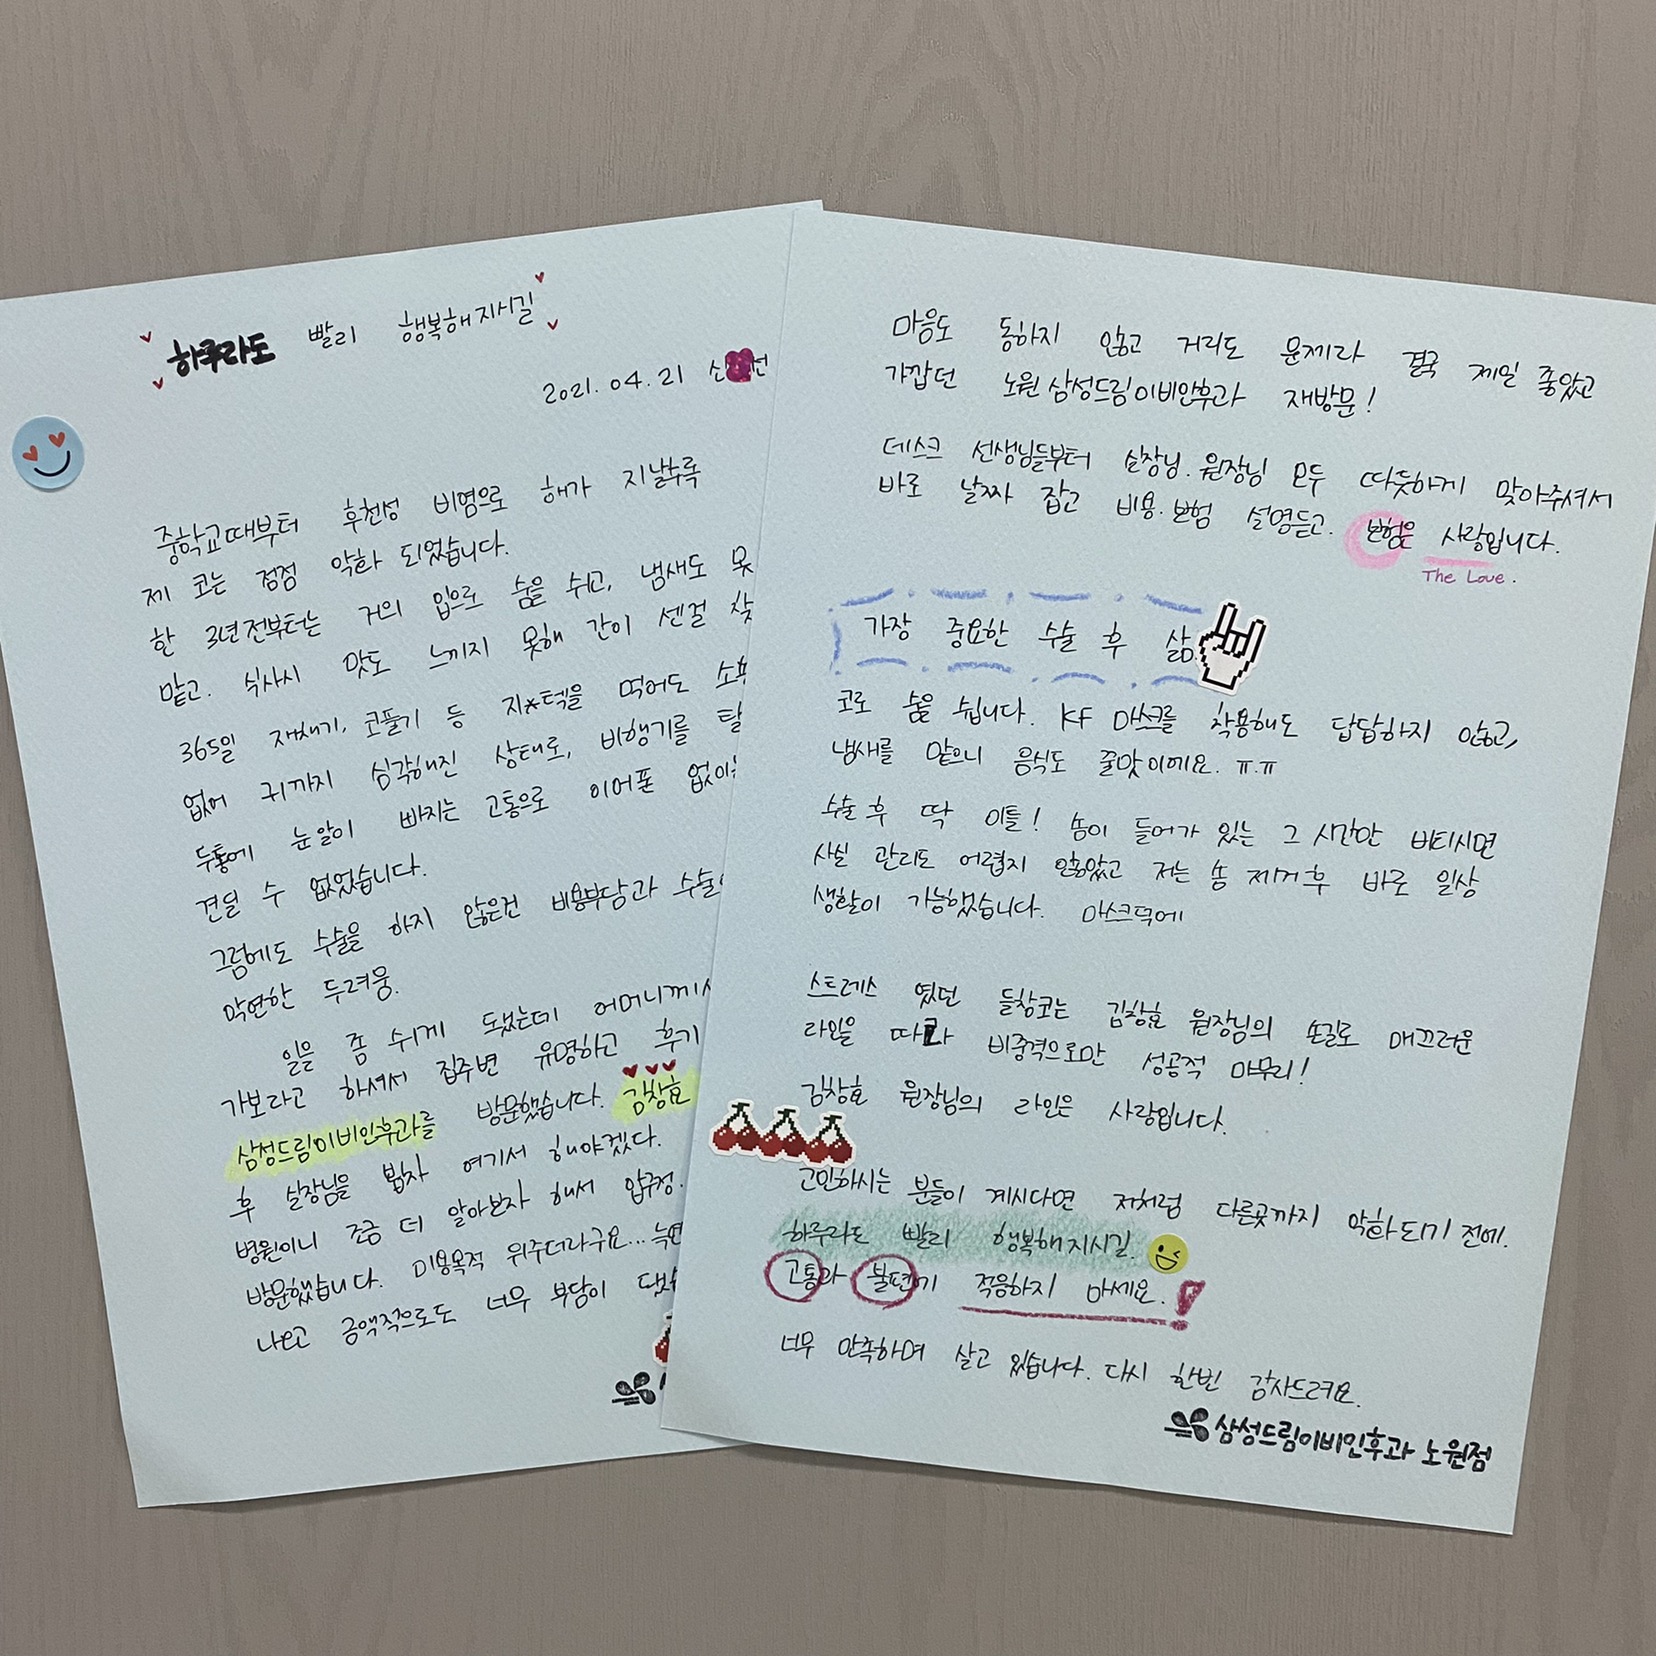 하루라도 빨리 행복해지시길
2021.04.21 신 선
중학교때부터 후천성 비염으로 해가 지날수록
제 코는 점점 악화 되었습니다.
한 3년전부터는 거의 입으로 숨을 쉬고, 냄새도 못
맡고. 식사시 맛도 느끼지 못해 간이 센걸 찾
365일 재채기, 코풀기 등 지*텍을 먹어도 소용
없어 귀까지 심각해진 상태로, 비행기를 탈
두통에 눈알이 빠지는 고통으로 이어폰 없이
견딜 수 없었습니다.
그럼에도 수술을 하지 않은건 비용부담과 수술
막연한 두려움.
일을 좀 쉬게 됐는데 어머니께서
가보라고 하셔서 집주변 유명하고 후기
삼성드림이비인후과를 방문했습니다. 김창효
후 실장님을 뵙자 여기서 해야겠다.
병원이니 조금 더 알아보자 해서 압구정.
방문했습니다. 미용목적 위주더라구요...
나오고 금액적으로도 너무 부담이
마음도 동하지 않고 거리도 문제라 결국 제일 좋았고
가깝던 노원 삼성드림이비인후과 재방문!
데스크 선생님들부터 실장님. 원장님 모두 따듯하게 맞아주셔서
바로 날짜 잡고 비용.보험 설명듣고. 보험은 사랑입니다.
The Love.
가장 중요한 수술 후 삶.
코로 숨을 쉽니다. KF 마스크를 착용해도 답답하지 않고,
냄새를 맡으니 음식도 꿀맛이에요. ㅠ.ㅠ
수술 후 딱 이틀! 솜이 들어가 있는 그 시간만 버티시면
사실 관리도 어렵지 않았고 저는 솜 제거후 바로 일상
생활이 가능했습니다. 마스크덕에
스트레스 였던 들창코는 김창효 원장님의 손길로 매끄러운
라인을 따라 비중격으로만 성공적 마무리!
김창효 원장님의 라인은 사랑입니다.
고민하시는 분들이 계시다면 저처럼 다른곳까지 악화되기 전에.
하루라도 빨리 행복해지시길.
고통과 불편에 적응하지 마세요.!
너무 만족하며 살고 있습니다. 다시 한번 감사드려요.
삼성드림이비인후과 노원점